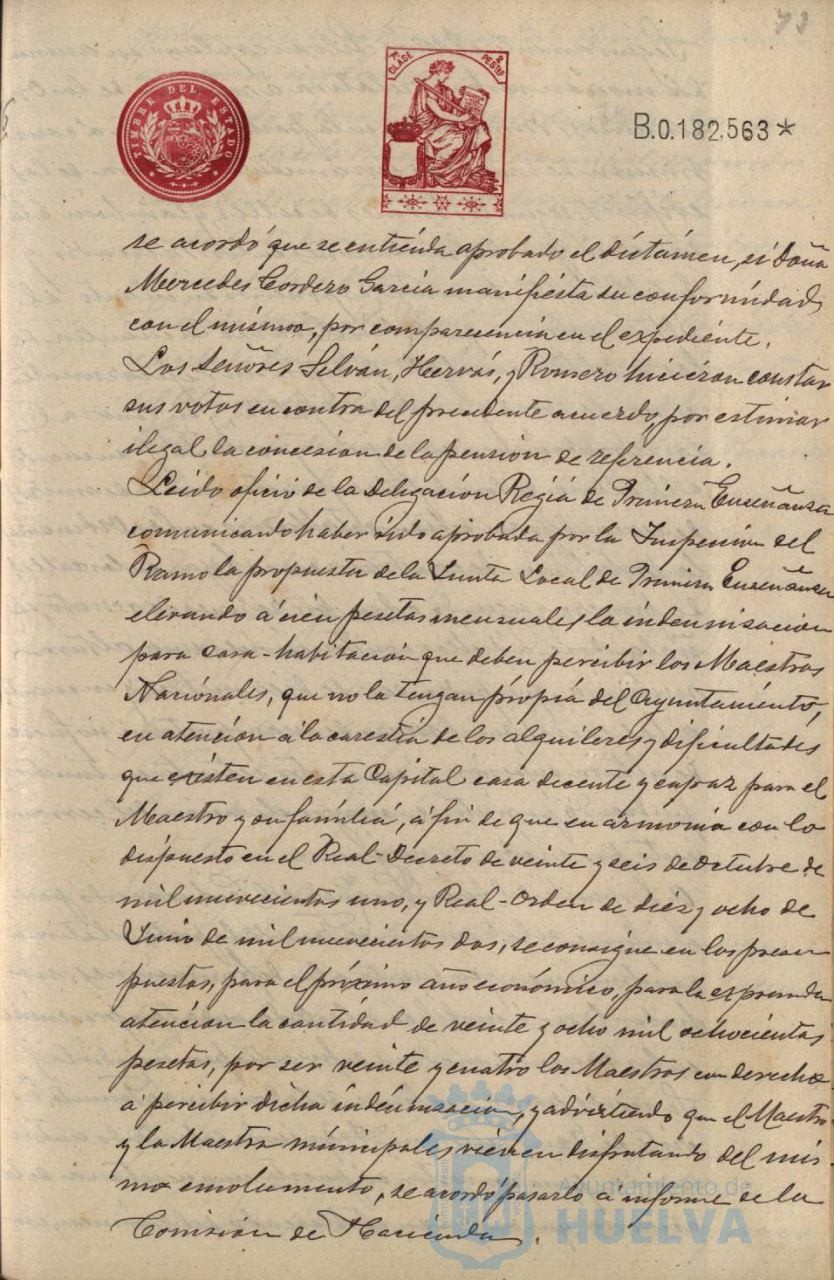 73
TIMBRE DEL ESTADO
7ª CLASE
2 PESTAS
B.0.182.563*
se acordó que se entienda aprobado el dictámen, si Doña
Mercedes Cordero Garcia manifiesta su conformidad
con el mismo, por comparecencia en el expediente.
Los Señores Selván, Hervás, y Romero hicieron constar
sus votos en contra del precedente acuerdo, por estimar
ilegal la concesion de la pension de referencia.
Leido oficio de la Delegación Regia de Primera Enseñanza
comunicando haber sido aprobada por la Inspección del
Ramo la propuesta de la Junta Local de Primera Enseñanza
elevando á cien pesetas mensuales la indemnizacion
para casa-habitación que deben percibir los Maestros
Nacionales, que no la tengan própia del Ayuntamiento,
en atención á la carestia de los alquileres y dificultades
que existen en esta Capital casa decente y capaz para el
Maestro y su família, á fin de que en armonia con lo
dispuesto en el Real-Decreto de veinte y seis de Octubre de
mil nuevecientos uno, y Real-Orden de diez y ocho de
Junio de mil nuevecientos dos, se consigne en los presu-
puestos, para el próximo año económico, para la expresada
atencion la cantidad de veinte y ocho mil ochocientas
pesetas, por ser veinte y cuatro los Maestros con derecho
á percibir dicha indemnizacion, y advirtiendo que el Maestro
y la Maestra municipales vienen disfrutando del mis-
mo emolumento, se acordó pasarlo a informe de la
Comisión de Hacienda.
Ayuntamiento de
HUELVA